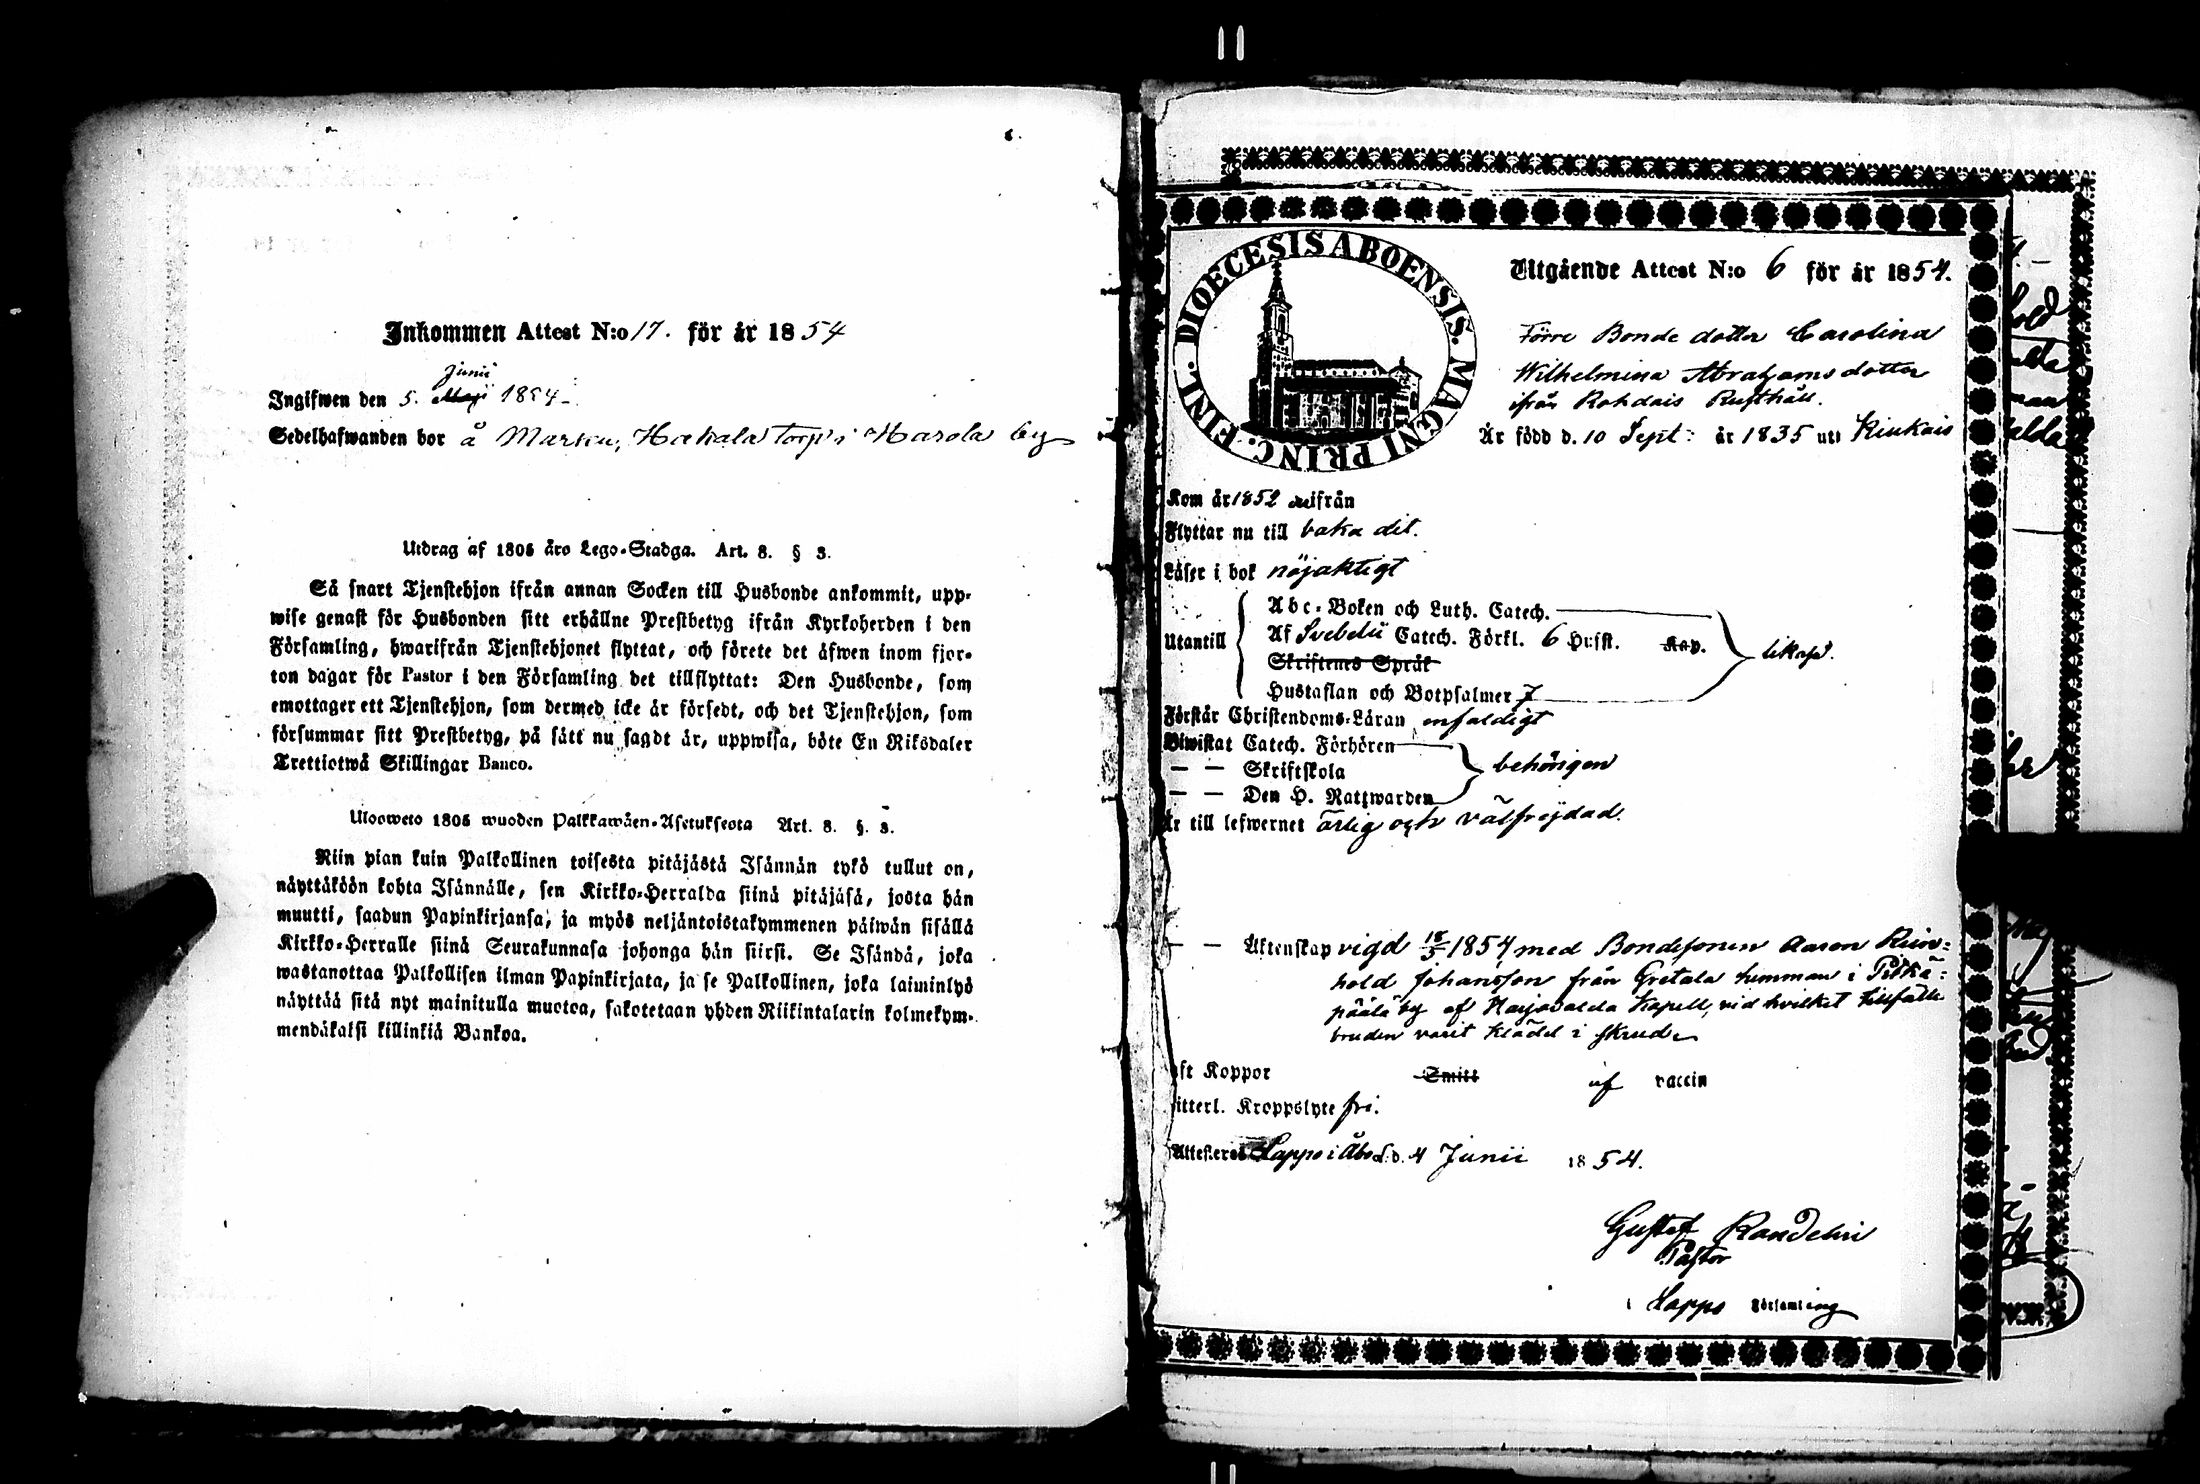 Inkommen Attest N:o 17. för år 1854
Junii
Ingifwen den 5. Maji 1854.
Sedelhafwanden bor å Marsu, Hakala torp i Harola by
Utdrag af 1805 års Lego-Stadga. Art. 8. § 3.
Så snart Tjenstehjon ifrån annan Socken till Husbonde ankommit, upp-
wise genast för Husbonden sitt erhållne Prestbetyg ifrån Kyrkoherden i den
Församling, hwarifrån Tjenstehjonet flyttat, och förete det äfwen inom fjor-
ton dagar för Pastor i den Församling det tillflyttat: Den Husbonde, som
emottager ett Tjenstehjon, som dermed icke är försedt, och det Tjenstehjon, som
försummar sitt Prestbetyg, på sätt nu sagdt är, uppwisa, böte En Riksdaler
Trettiotwå Skillingar Banco.
Ulosweto 1805 wuoden Palkkawäen-Asetuksesta Art. 8. §. 3.
Niin pian kuin Palkollinen toisesta pitäjästä Isännän tykö tullut on,
näyttäköön kohta Isännälle, sen Kirkko-Herralda siinä pitäjäsä, josta hän
muutti, saadun Papinkirjansa, ja myös neljäntoistakymmenen päiwän sisällä
Kirkko-Herralle siinä Seurakunnasa johonga hän siirsi. Se Isändä, joka
wastanottaa Palkollisen ilman Papinkirjata, ja se Palkollinen, joka laiminlyö
näyttää sitä nyt mainitulla muotoa, sakotetaan yhden Riikintalarin kolmekym-
mendäkaksi killinkiä Bankoa.
DIOECESIS ABOENSIS. MAGNI PRINC. FINL.
Utgående Attest N:o 6 för år 1854.
Förre Bonde dotter Carolina
Wilhelmina Abrahams dotter
ifrån Rohdais Rusthåll.
Är född d. 10 Sept: år 1835 uti Kiukais
Kom år 1852 derifrån
Flyttar nu till baka dit.
Läser i bok nöjaktigt
Abc-Boken och Luth. Catech.
Utantill Af Svebelii Catech. Förkl. 6 Hufst. Kap. likaså.
Skriftenes Språk
Hustaflan och Botpsalmer 7
Förstår Christendoms-Läran enfaldigt
Biwistat Catech. Förhören
— — Skriftskola behörigen
— — Den H. Nattwarden
Är till lefwernet ärlig och välfrejdad.
— — Äktenskap vigd 18/5 1854 med Bondesonen Aaron Rein-
hold Johansson från Gretala hemman i Pitkä-
päälä by af Harjavalda Kapell, vid hvilket tillfälle
bruden varit klädd i skrud
aft Koppor Smitt af vaccin
itterl. Kroppslyte fri.
Attesteras Lappi i Åbo L. d. 4 Junii 1854.
Gustaf Randelin
Pastor
i Lappo Församling